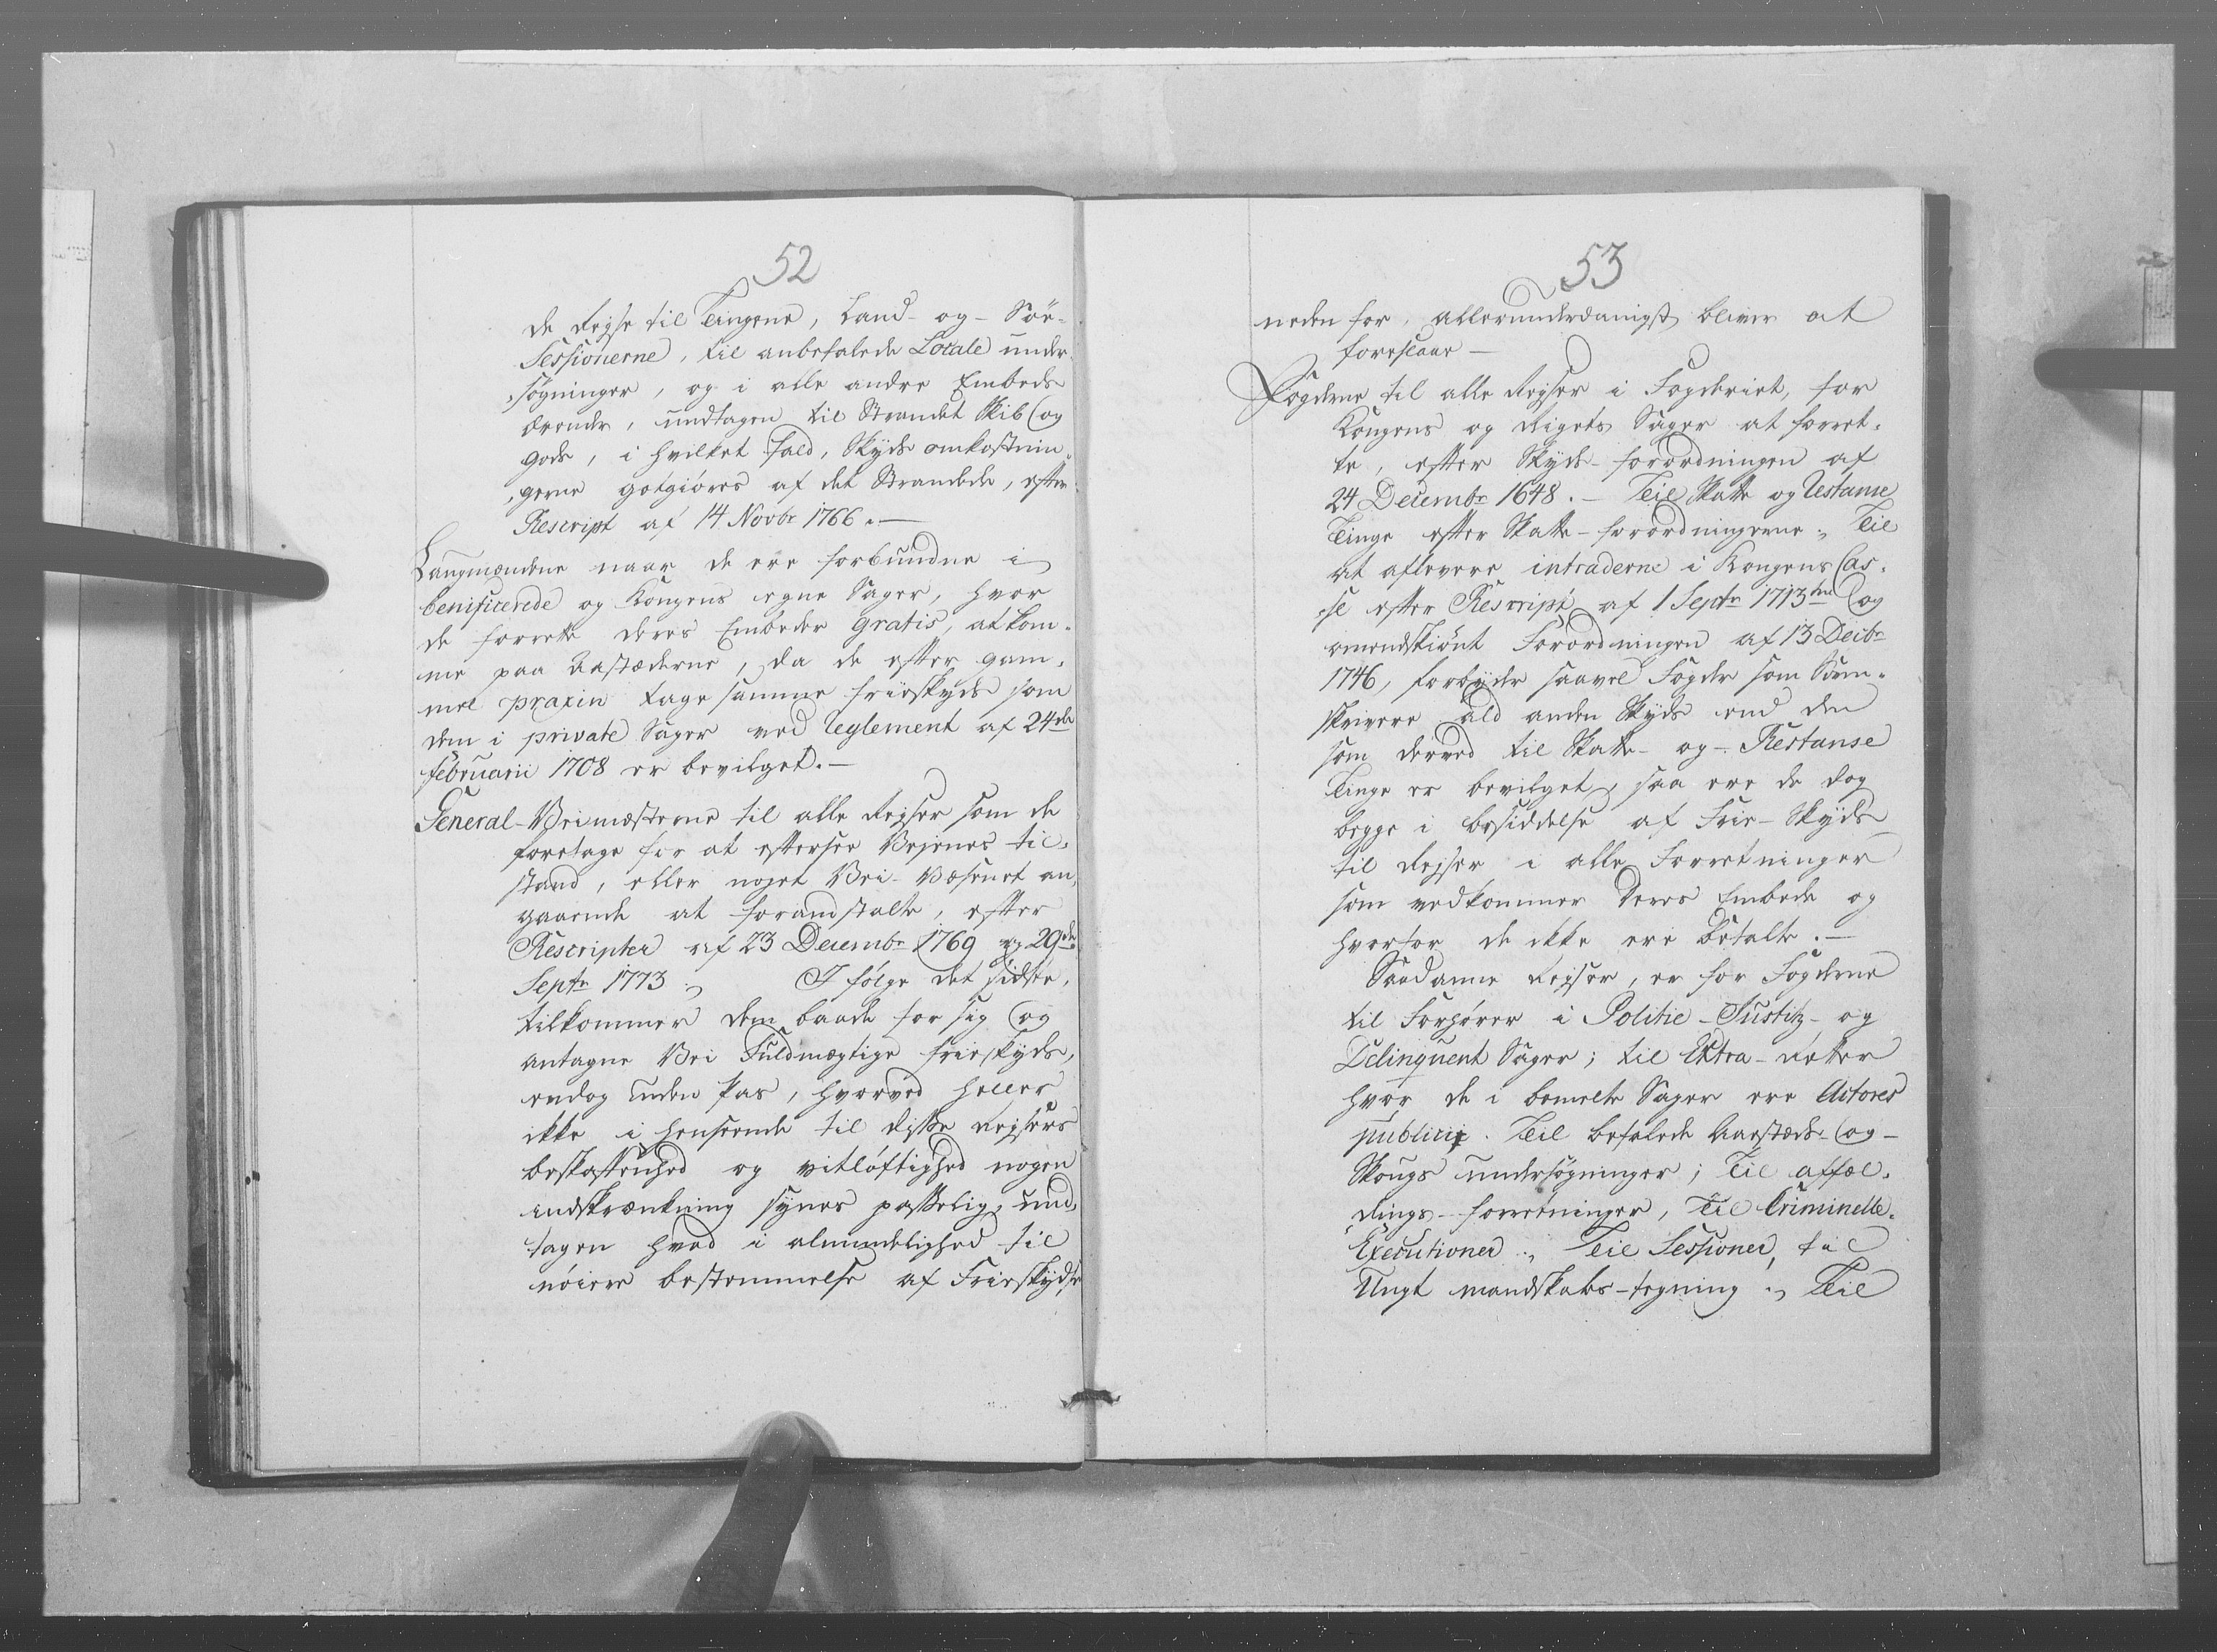 52
de Rejse til Tingene, Land- og- Söe-
Sessionerne, til anbefalede Locale under-
søgninger, og i alle andre Embeds
ærender, undtagen til Strandet Skib og
Gods, i hvilket fald, Skyds omkostnin-
gerne gotgiøres af det Strandede, efter
Rescript af 14 Novbr 1766.—
Laugmændene naar de ere forbundne i
benificerede og Kongens egne Sager, hvor
de forrette deres Embeder Gratis, at kom-
me paa Aastæderne, da de efter gam-
mel praxin tage samme frieskyds som
dem i private Sager ved Reglement af 24de
februarii 1708 er bevilget.—
General-Veimesterne til alle Rejser som de
foretage for at efterse Vejenes til-
stand, eller noget Vei-Væsenet an-
gaaende at foranstalte, efter
Rescripter af 23 Decembr 1769 og 29de
Septr 1773. I følge det sidste,
tilkommer dem baade for sig og
antagne Vei Fuldmægtige frieskyds,
endog uden Pas, hvorved heller
ikke i henseende til disse Rejsers
beskaffenhed og vitløftighed nogen
indskrænkning synes passelig, und-
tagen hvad i almindelighed til
nøiere bestemmelse af Frieskydse
53
neden for, allerunderdanigst bliver at
foreslaae —
Fogderne til alle Rejser i Fogderiet, for
Kongens og Rigets Sager at forret-
te, efter Skyds-forordningen af
24 Decembr 1648.— Til Skatte og Restanse
Tinge efter Skatte-forordningerne; Til
at aflevere intraderne i Kongens Cas-
se efter Rescript af 1 Septr 1713 og
omendskiönt Forordningen af 13 Decbr
1746, forbyder saavel Fogder som Soren-
skrivere ald anden Skyds end den
som derved til Skatte- og- Restanse
Tinge er bevilget, saa ere de dog
begge i besiddelse af Frie-Skyds
til Rejser i alle Forretninger
som vedkommer deres Embede og
hvorfor de ikke ere betalte.—
Saadanne Rejser, er for Fogderne
til Forhører i Politie-Justitz- og
Delinquent Sager; til Extra-Retter
hvor de i bemelte Sager ere Actores
publici. Til befalede Aarstæds- og-
Skougs undersøgninger; Til affæl-
dings-forretninger, Til Criminelle-
Executioner; Til Sessioner, til
Ungt mandskabs-tegning; Til